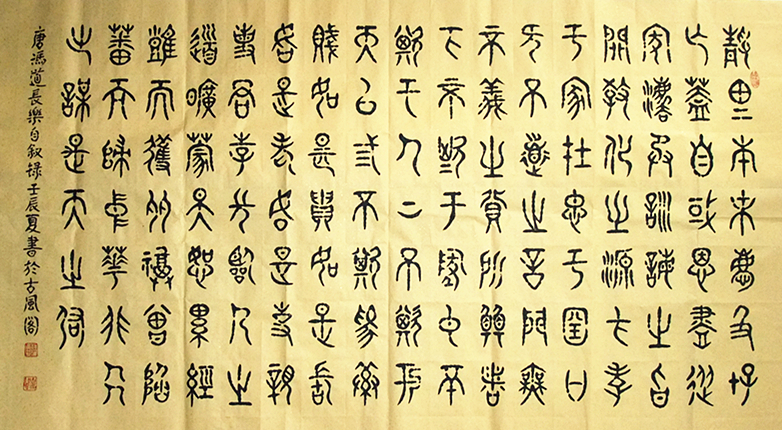 靜思本末慶及存
亡蓋自或恩盡從
家灋承訓誨之旨
關教化之源在孝
于家在忠于國口
无不道之言門無
不義之貨所願者
下不欺于地中不
欺于人上不欺于
天以弎不欺為素
賤如是貴如是長
如是老如是事親
事君事長臨人之
道曠蒙天恕累經
難而獲多福曾陷
蕃而歸中華非人
之謀是天之佑
唐馮道長樂自叙錄壬辰夏書於古風閣